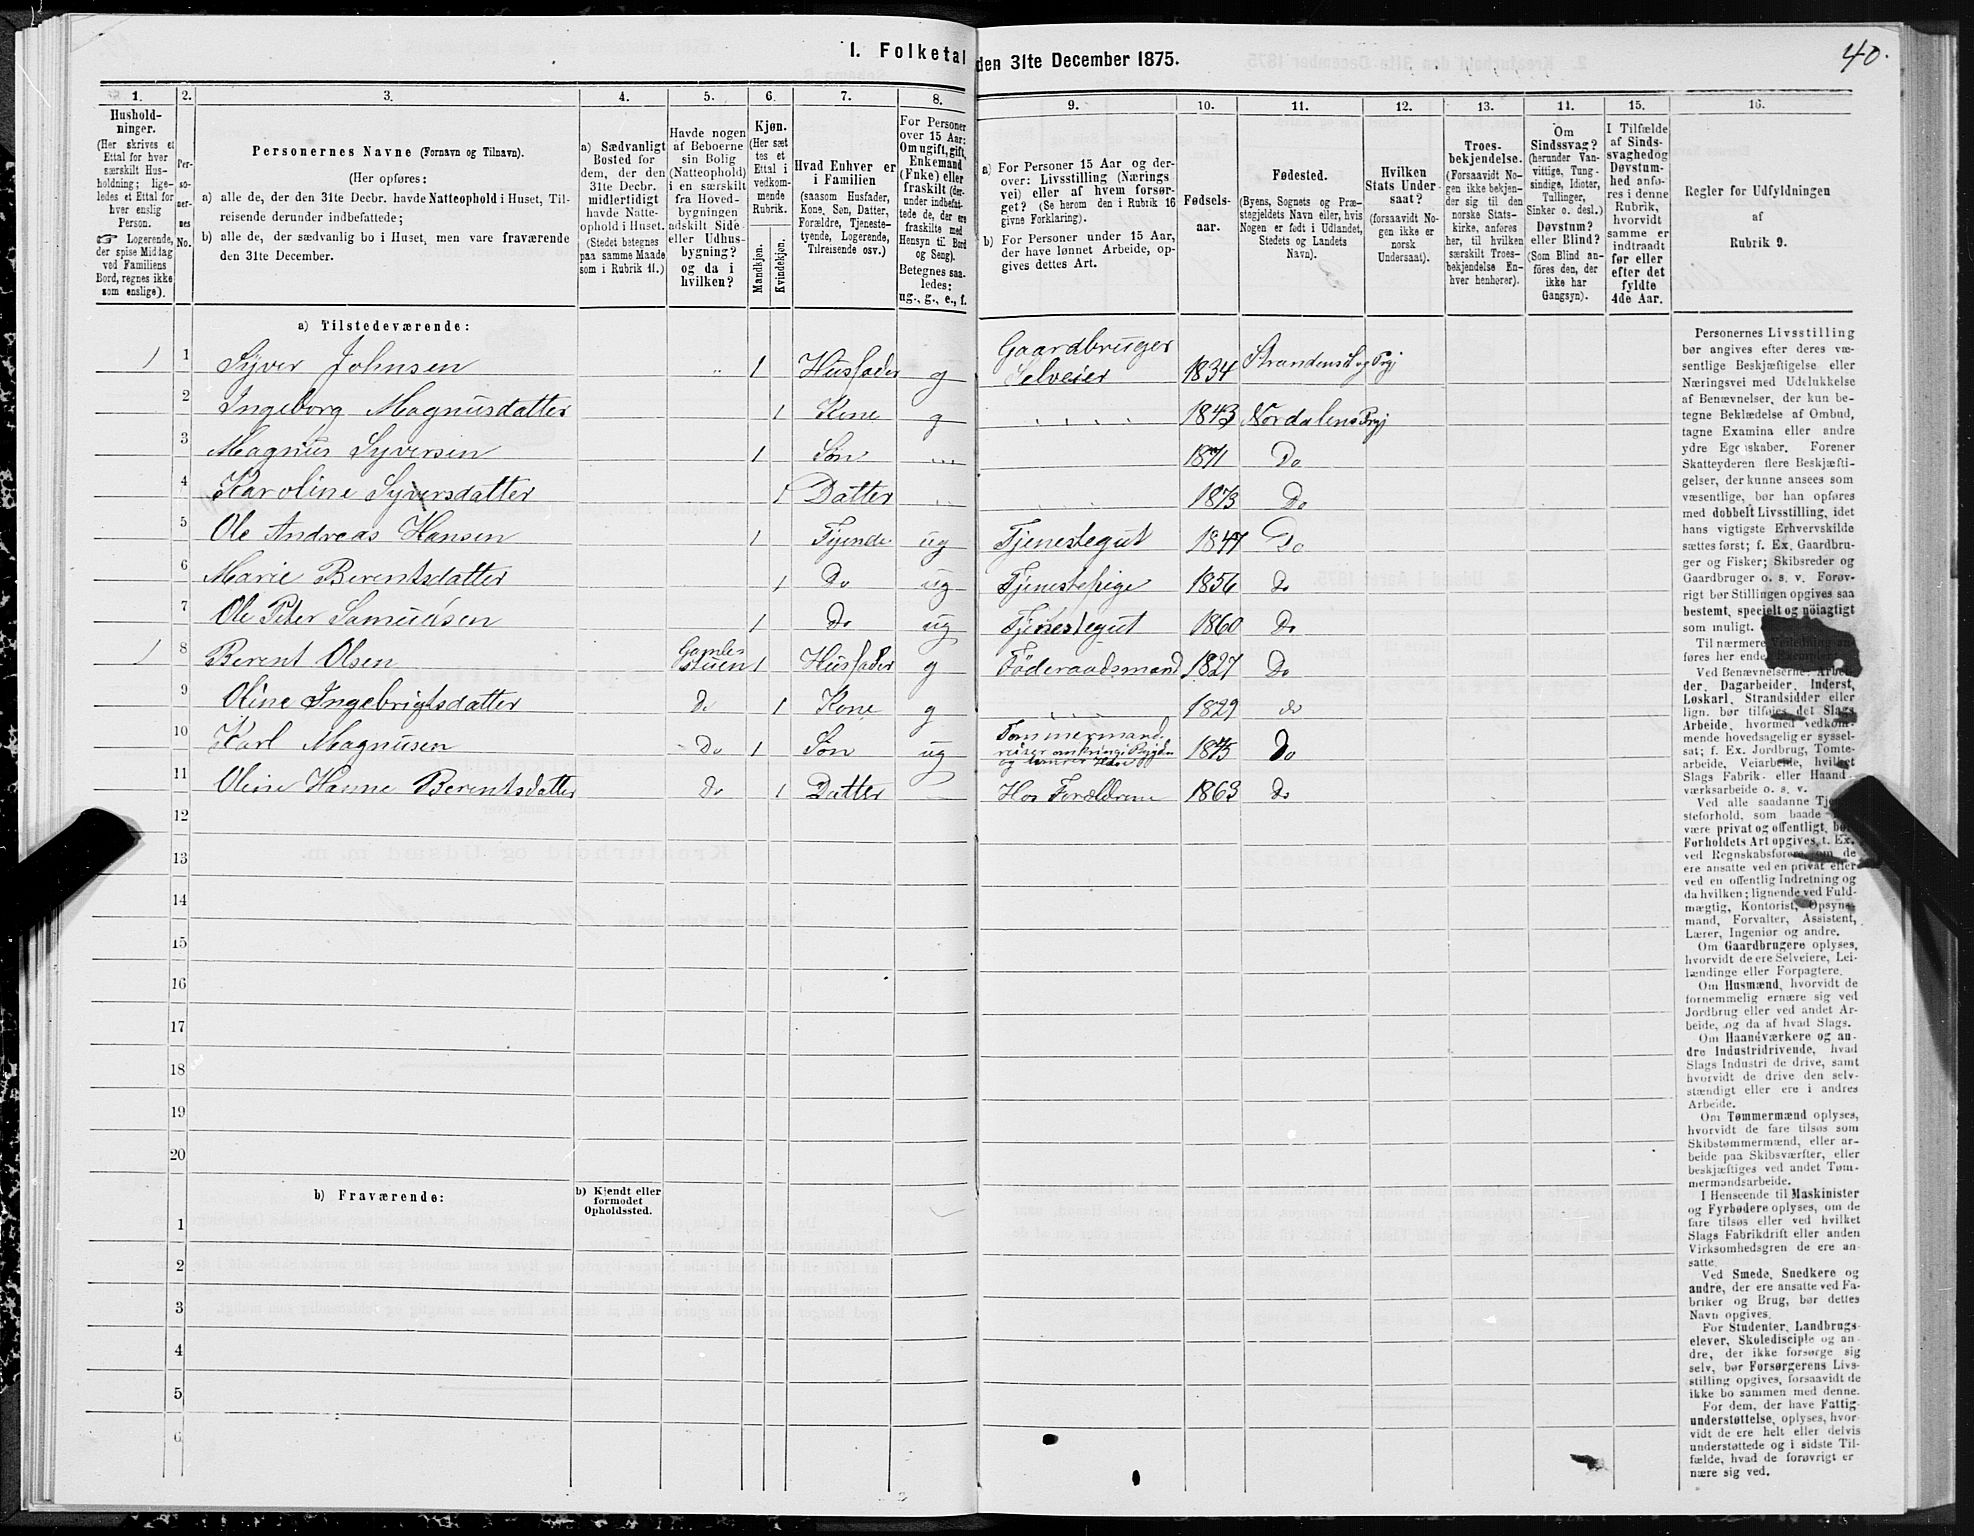 40.
I. Folketal den 31te December 1875.
1. 2. 3. 4. 5. 6. 7. 8. 9. 10. 11. 12. 13. 14. 15. 16.
Hushold-
ninger.
(Her skrives et
Ettal for hver
særskilt Hus-
holdning; lige-
ledes et Ettal for
hver enslig
Person.
☞ Logerende,
der spise Middag
ved Familiens
Bord, regnes ikke
som enslige).
Per-
so-
ner-
nes
No.
Personernes Navne (Fornavn og Tilnavn).
(Her opføres:
a) alle de, der den 31te Decbr. havde Natteophold i Huset, Til-
reisende derunder indbefattede;
b) alle de, der sædvanlig bo i Huset, men vare fraværende
den 31te December.
a) Sædvanligt
Bosted for
dem, der den
31te Decbr.
midlertidigt
havde Natte-
ophold i Huset.
(Stedet betegnes
paa samme Maade
som i Rubrik 11.)
Havde nogen
af Beboerne
sin Bolig
(Natteophold)
i en særskilt
fra Hoved-
bygningen
adskilt Side-
eller Udhus-
bygning?
og da i
hvilken?
Kjøn.
(Her sæt
tes et
Ettal i
vedkom-
mende
Rubrik.
Mandkjøn.
Kvindekjøn.
Hvad Enhver er
i Familien
(saasom Husfader,
Kone, Søn, Datter,
Forældre, Tjeneste-
tyende, Logerende,
Tilreisende osv.)
For Personer
over 15 Aar:
Om ugift, gift,
Enkemand
(Enke) eller
fraskilt (der-
under indbefat-
tede de, der ere
fraskilte med
Hensyn til Bord
og Seng).
Betegnes saa-
ledes:
ug., g., e., f.
a) For Personer 15 Aar og der-
over: Livsstilling (Nærings
vei) eller af hvem forsør-
get? (Se herom den i Rubrik 16
givne Forklaring).
b) For Personer under 15 Aar,
der have lønnet Arbeide, op-
gives dettes Art.
Fødsels-
aar.
Fødested.
(Byens, Sognets og Præ-
stegjeldets Navn eller, hvis
Nogen er født i Udlandet,
Stedets og Landets
Navn).
Hvilken
Stats Under-
saat?
(forsaavidt No-
gen ikke er
norsk
Undersaat).
Troes-
bekjendelse.
(Forsaavidt No-
gen ikke bekjen-
der sig til den
norske Stats-
kirke, anføres
her, til hvilken
særskilt Troes-
bekjendelse En-
hver henhører).
Om
Sindssvag?
(herunder Van-
vittige, Tung-
sindige, Idioter,
Tullinger,
Sinker o. desl.)
Døvstum?
eller Blind?
(Som Blind an-
føres den, der
ikke har
Gangsyn).
I Tilfælde
af Sinds-
svaghed og
Døvstum-
hed anfø-
res i denne
Rubrik,
hvorvidt
samme er
indtraadt
før eller
efter det
fyldte
4de Aar.
Regler for Udfyldningen
af
Rubrik 9.
a) Tilstedeværende:
1 1 Syver Johnsen 1 Husfader g Gaardbruger Selveier 1834 Strandens Sogn og Prgj
2 Ingeborg Magnusdatter 1 Kone g 1843 Nordalens Prgj
3 Magnus Syversen 1 Søn 1871 Do
4 Karoline Syversdatter 1 Datter 1873 Do
5 Ole Andreas Hansen 1 Tyende ug Tjenestegut 1847 Do
6 Marie Berentsdatter 1 Do ug Tjenestepige 1856 Do
7 Ole Peter Samuelsen 1 Do ug Tjenestegut 1860 Do
1 8 Berent Olsen Gamlestuen 1 Husfader g Föderaadsmand 1827 Do
9 Oline Ingebrigtsdatter Do 1 Kone g 1829 do
10 Karl Magnusen Do 1 Søn ug Tømmermand reiser omkring i Bygden og 1845 Do
11 Oline Hanne Berentsdatter Do 1 Datter Hos Forældrene 1863 Do
12
13
14
15
16
17
18
19
20
b) Fraværende:
b) Kjendt eller
formodet
Opholdssted.
1
2
3
4
5
6
Personernes Livsstilling
bør angives efter deres væ-
sentlige Beskjæftigelse eller
Næringsvei med Udelukkelse
af Benævnelser, der kun be-
tegne Beklædelse af Ombud,
tagne Examina eller andre
ydre Egenskaber. Forener
Skatteyderen flere Beskjæfti-
gelser, der kunne ansees som
væsentlige, bør han opføres
med dobbelt Livsstilling, idet
hans vigtigste Erhvervskilde
sættes først; f. Ex. Gaardbru-
ger og Fisker; Skibsreder og
Gaardbruger o. s. v. Forøv-
rigt bør Stillingen opgives saa
bestemt, specielt og nöiagtigt
som muligt.
Til nærmere Veiledning an-
føres her endel Exempler:
Ved Benævnelserne: Arbei-
der, Dagarbeider, Inderst,
Løskarl, Strandsidder eller
lign. bør tilføies det Slags
Arbeide, hvormed vedkom-
mende hovedsagelig er syssel-
sat; f. Ex. Jordbrug, Tomte-
arbeide, Veiarbeide, hvilket
Slags Fabrik- eller Haand-
værksarbeide o. s. v.
Ved alle saadanne Tje-
steforhold, som baade
være privat og offentligt, bør
Forholdets Art opgives, t. Ex.
ved Regnskabsførere, om de
ere ansatte ved en privat eller
ved en offentlig Indretning og
da hvilken; lignende ved Fuld-
mægtig, Kontorist, Opsyns-
mand, Forvalter, Assistent,
Lærer, Ingeniør og andre.
Om Gaardbrugere oplyses,
hvorvidt de ere Selveiere, Lei-
lændinge eller Forpagtere.
Om Husmænd, hvorvidt de
fornemmelig ernære sig ved
Jordbrug eller ved andet Ar-
beide, og da af hvad Slags.
Om Haandværkere og an-
dre Industridrivende, hvad
Slags Industri de drive, samt
hvorvidt de drive den selv-
stændigt eller ere i andres
Arbeide.
Om Tømmermænd oplyses,
hvorvidt de fare tilsøs som
Skibstømmermænd, eller ar-
beide paa Skibsværfter, eller
beskjæftiges ved andet Tøm-
mermandsarbeide.
I Henseende til Maskinister
og Fyrbødere oplyses, om de
fare tilsøs eller ved hvilket
Slags Fabrikdrift eller anden
Virksomhedsgren de ere an-
satte.
Ved Smede, Snedkere og
andre, der ere ansatte ved Fa-
briker og Brug, bør dettes
Navn opgives.
For Studenter, Landbrugs-
elever, Skoledisciple og an-
dre, der ikke forsørge sig
selv, bør Forsørgerens Livs-
stilling opgives, forsaavidt de
ikke bo sammen med denne.
For dem, der have Fattig-
understøttelse, oplyses, hvor-
vidt de ere helt eller delvis
understøttede og i sidste Til-
fælde, hvad de forøvrigt er
nære sig ved.